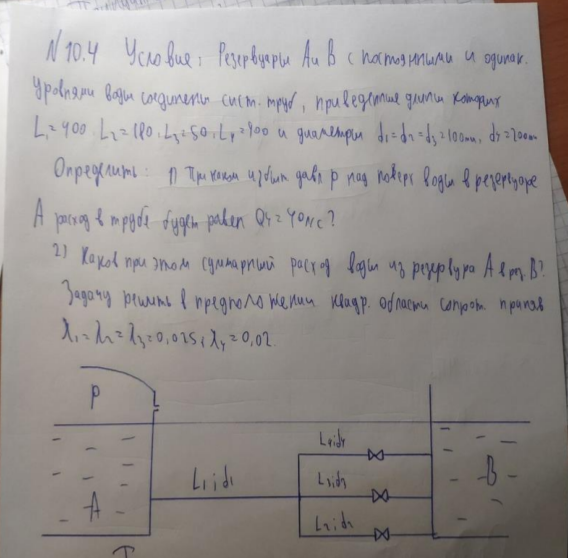 N 10.4 Условие: Резервуары A и B с постоянными и одинак.
уровнями воды соединены сист. труб, приведенные длины которых
L₁=400, L₂=180, L₃=50, L₄=400 и диаметры d₁=d₂=d₃=100мм, d₄=200мм
Определить: 1) При каком избыт давл p над поверх воды в резервуаре
A расход в трубе будет равен Q₄=40 л/с?
2) Каков при этом суммарный расход воды из резервуара A в рез. B?
Задачу решить в предположении квадр. области сопрот. приняв
λ₁=λ₂=λ₃=0,025, λ₄=0,02.
P
L₄; d₄
L₁; d₁
L₃; d₃
B
A
L₂; d₂